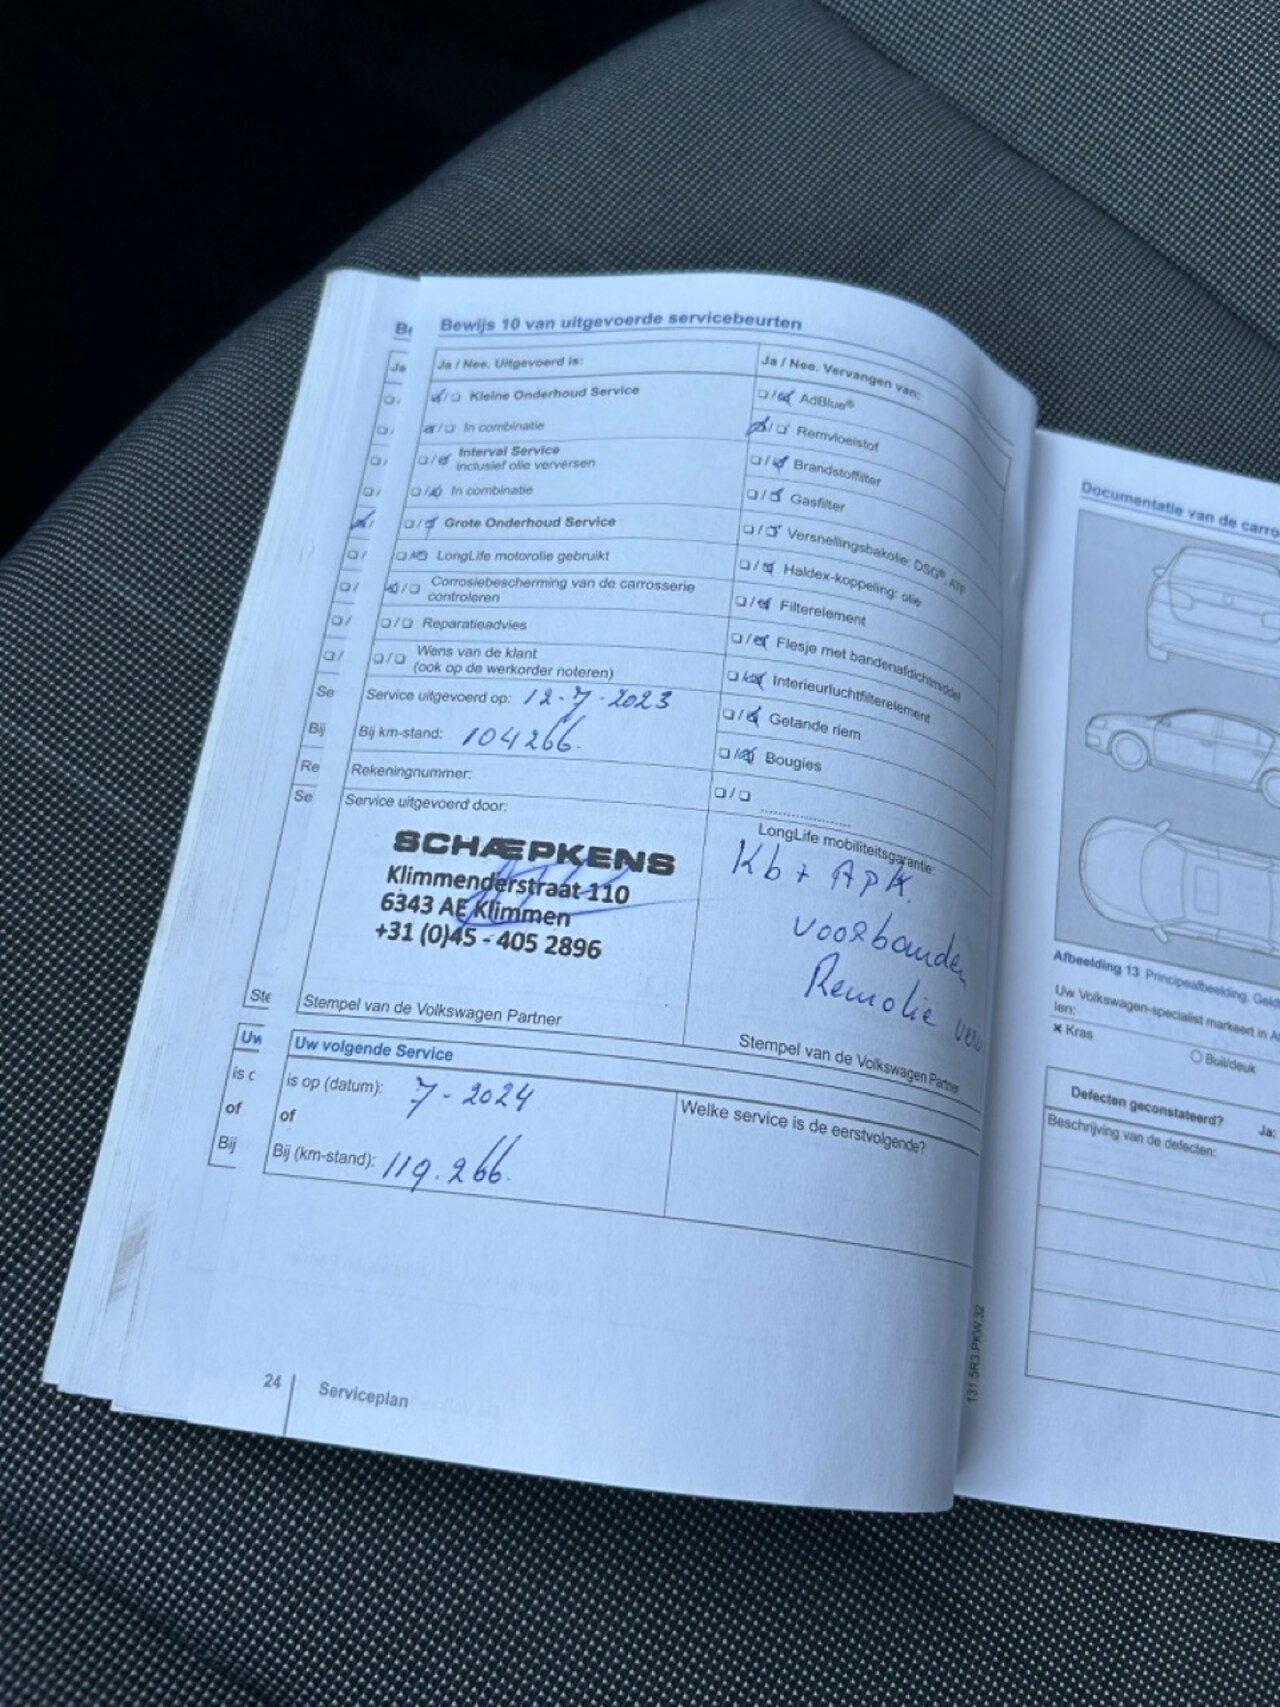 Be
Bewijs 10 van uitgevoerde servicebeurten
Ja
Ja / Nee. Uitgevoerd is:
Kleine Onderhoud Service
In combinatie
Interval Service
inclusief olie verversen
In combinatie
Grote Onderhoud Service
LongLife motorolie gebruikt
Corrosiebescherming van de carrosserie
controleren
Reparatieadvies
Wens van de klant
(ook op de werkorder noteren)
Se
Service uitgevoerd op: 12-7-2023
Bij
Bij km-stand: 104266.
Re
Rekeningnummer:
Se
Service uitgevoerd door:
SCHÆPKENS
Klimmenderstraat 110
6343 AE Klimmen
+31 (0)45 - 405 2896
Ste
Stempel van de Volkswagen Partner
Ja / Nee. Vervangen van:
AdBlue®
Remvloeistof
Brandstoffilter
Gasfilter
Versnellingsbakolie: DSG®, ATF
Haldex-koppeling: olie
Filterelement
Flesje met bandenafdichtmiddel
Interieurluchtfilterelement
Getande riem
Bougies
LongLife mobiliteitsgarantie:
Kb + Apk.
voorbanden
Remolie
Stempel van de Volkswagen Partner
Uw
Uw volgende Service
is op (datum): 7-2024
of
of
Bij
Bij (km-stand): 119.266.
Welke service is de eerstvolgende?
24
Serviceplan
131.5R3.PKW.32
Documentatie van de carro
Afbeelding 13 Principeafbeelding. Geld
Uw Volkswagen-specialist markeert in A
len:
Kras
Buil/deuk
Defecten geconstateerd?
Ja:
Beschrijving van de defecten: